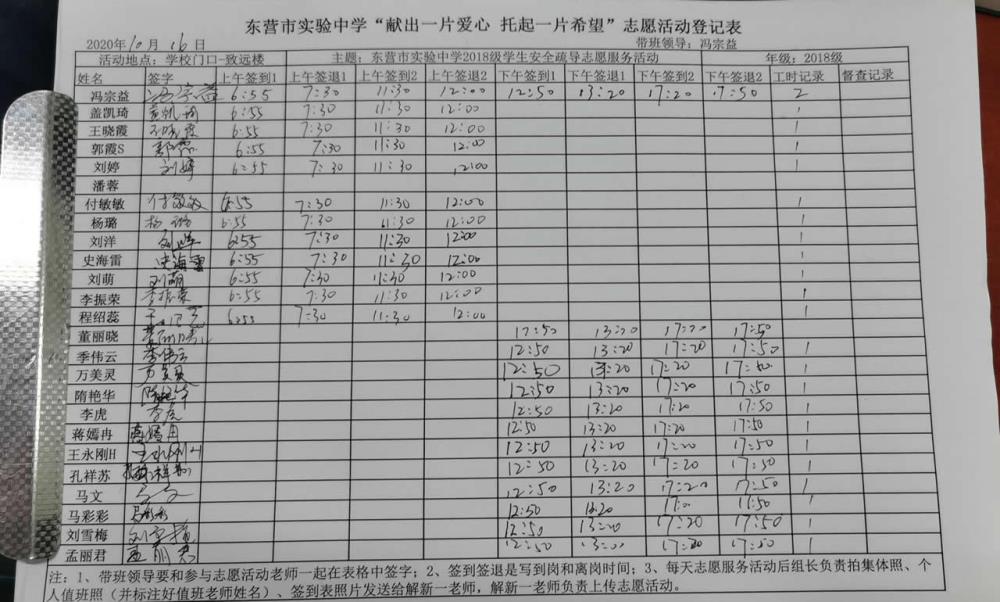 东营市实验中学“献出一片爱心 托起一片希望”志愿活动登记表
2020年10月16日 带班领导：冯宗益
活动地点：学校门口-致远楼 主题：东营市实验中学2018级学生安全疏导志愿服务活动 年级：2018级
姓名 签字 上午签到1 上午签退1 上午签到2 上午签退2 下午签到1 下午签退1 下午签到2 下午签退2 工时记录 督查记录
冯宗益 冯宗益 6:55 7:30 11:30 12:00 12:50 13:20 17:20 17:50 2
盖凯琦 盖凯琦 6:55 7:30 11:30 12:00 1
王晓霞 王晓霞 6:55 7:30 11:30 12:00 1
郭霞S 郭霞 6:55 7:30 11:30 12:00 1
刘婷 刘婷 6:55 7:30 11:30 12:00 1
潘蓉
付敏敏 付敏敏 6:55 7:30 11:30 12:00 1
杨璐 杨璐 6:55 7:30 11:30 12:00 1
刘洋 刘洋 6:55 7:30 11:30 12:00 1
史海雷 史海雷 6:55 7:30 11:30 12:00 1
刘萌 刘萌 6:55 7:30 11:30 12:00 1
李振荣 李振荣 6:55 7:30 11:30 12:00 1
程绍蕊 6:55 7:30 11:30 12:00 1
董丽晓 12:50 13:20 17:20 17:50
季伟云 季伟云 12:50 13:20 17:20 17:50 1
万美灵 万美灵 12:50 13:20 17:20 17:50 1
隋艳华 隋艳华 12:50 13:20 17:20 17:50 1
李虎 李虎 12:50 13:20 17:20 17:50 1
蒋嫣冉 蒋嫣冉 12:50 13:20 17:20 17:50 1
王永刚H 王永刚H 12:50 13:20 17:20 17:50 1
孔祥苏 12:50 13:20 17:20 17:50 1
马文 马文 12:50 13:20 17:20 17:50 1
马彩彩 马彩彩 12:50 17:50 1
刘雪梅 刘雪梅 12:50 13:20 17:20 17:50 1
孟丽君 孟丽君 12:50 17:50 1
注：1、带班领导要和参与志愿活动老师一起在表格中签字；2、签到签退是写到岗和离岗时间；3、每天志愿服务活动后组长负责拍集体照、个
人值班照（并标注好值班老师姓名）、签到表照片发送给解新一老师，解新一老师负责上传志愿活动。